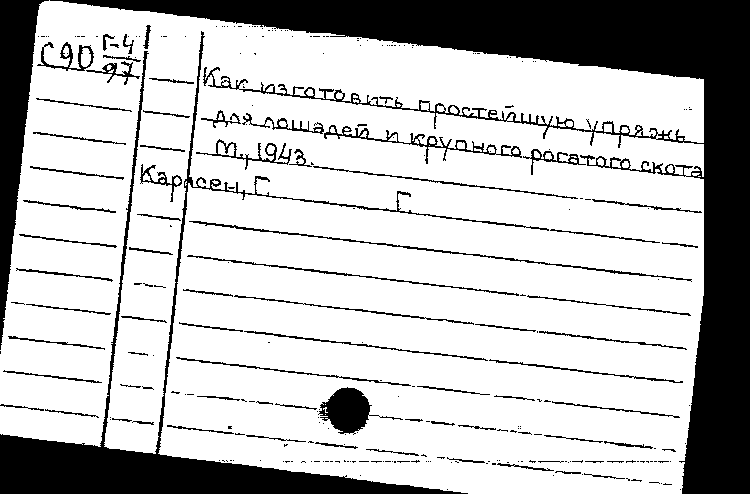 С90 Г-4
97
Как изготовить простейшую упряжь
для лошадей и крупного рогатого скота
М., 1943.
Карасен, Г. Г.